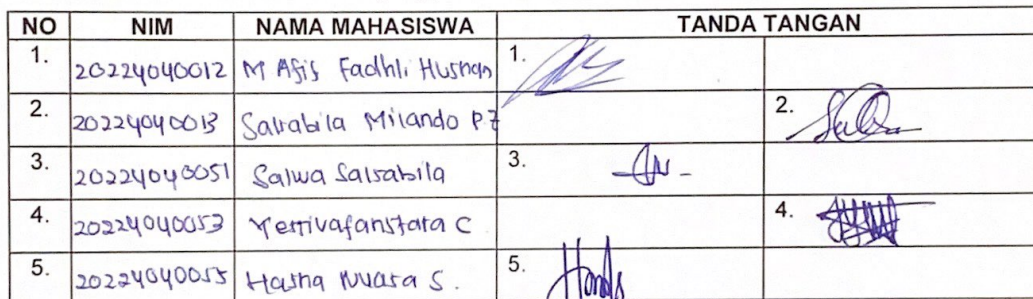 NO NIM NAMA MAHASISWA TANDA TANGAN
1. 20224040012 M Afis Fadhli Husnan 1.
2. 20224040013 Salsabila Milando P.Z 2.
3. 20224040051 Salwa Salsabila 3.
4. 20224040053 C 4.
5. 20224040055 Hasna S. 5.